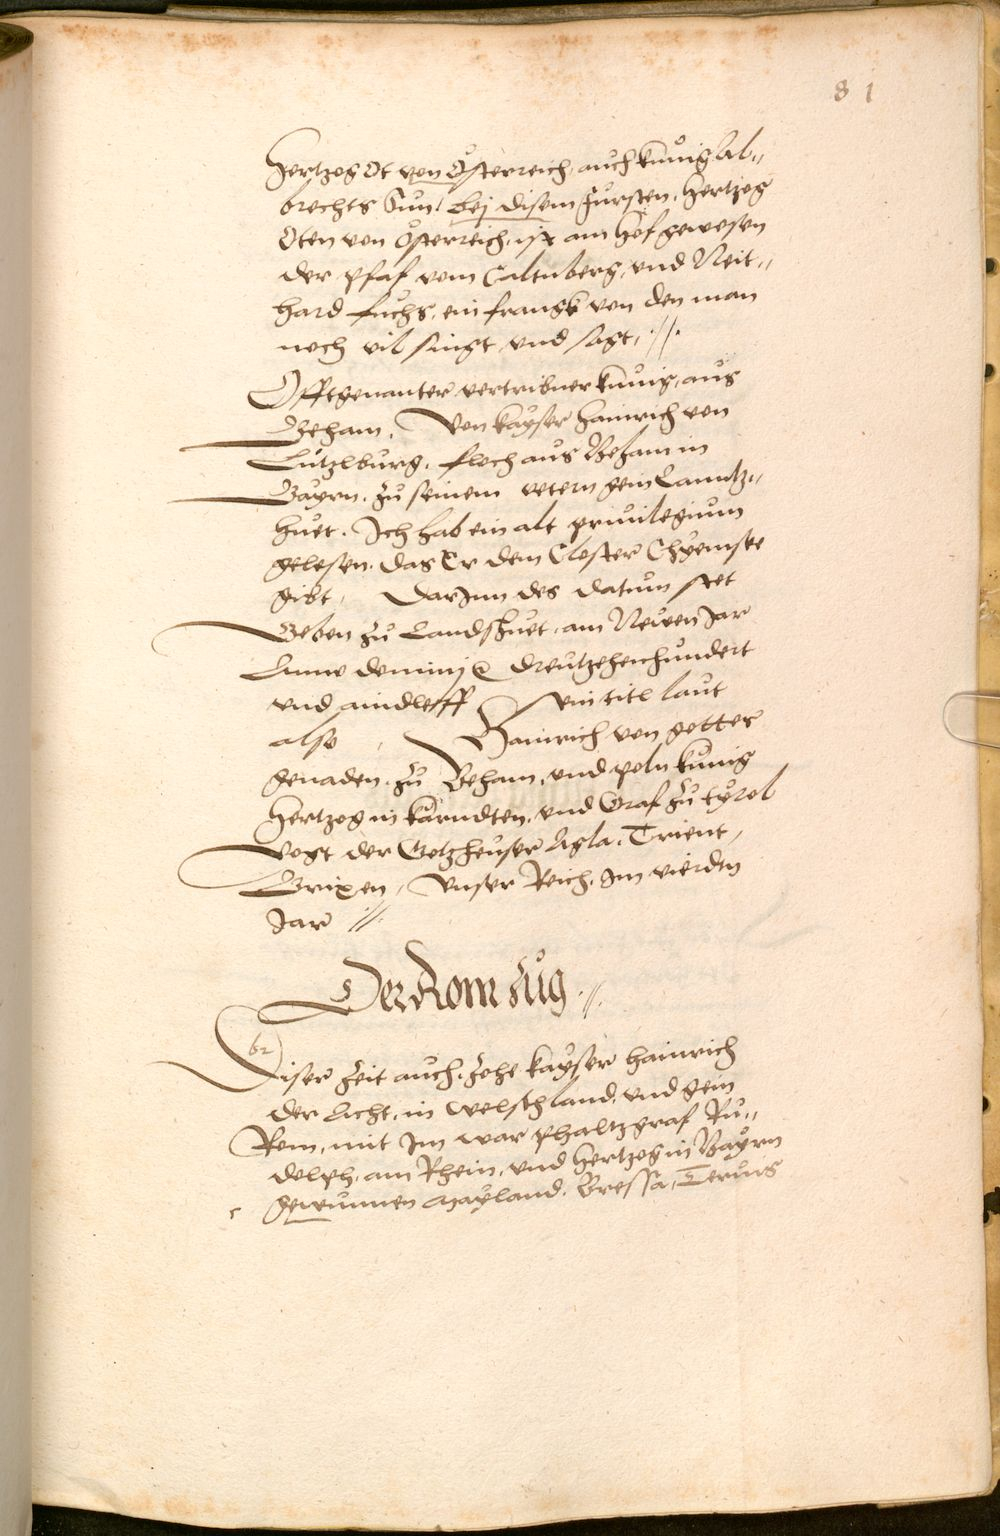 81
Hertzog Ot von Österreich, auch kunig Al„
brechts Sun. bej disem Fursten, Hertzog
Oten von Österreich, ist am Hof gewesen
der Pfaf vom Caltnberg, und Neit„
hard fuchs, ein frangk von den man
noch vil singt und sagt, ·//.
Offtgenanter vertribner kunig, aus
Beham, Von kayser Hainrich von
Lutzlburg, floch aus Beham in
Bayrn, zu seinem vetern gein Landtz„
huet. Ich hab ein alt privilegium
gelesen, das Er dem Closter Chyemsee
gibt, Darinn des datum stet
Geben zu Landshuet, am Neuen Jar
Anno dominj dreutzehenhundert
und aindleff sein titl laut
also, Hainrich von gottes
genaden, zu Beham, und poln kunig
Hertzog in kärndten, und Graf zu tyrol
Vogt der Gotzheuser Agla, Trient,
Brixen, Unser Reich, Im vierdtn
Jar //.
Der Rom Zug ·//.
Diser Zeit auch, Zohe kayser Hainrich
der Acht, in welschland, und gein
Rom, mit Im war Phaltzgraf Ru„
dolph, am Rhein, und Hertzog in Bayrn
gewunnen Mayland, Bressa, Tervis